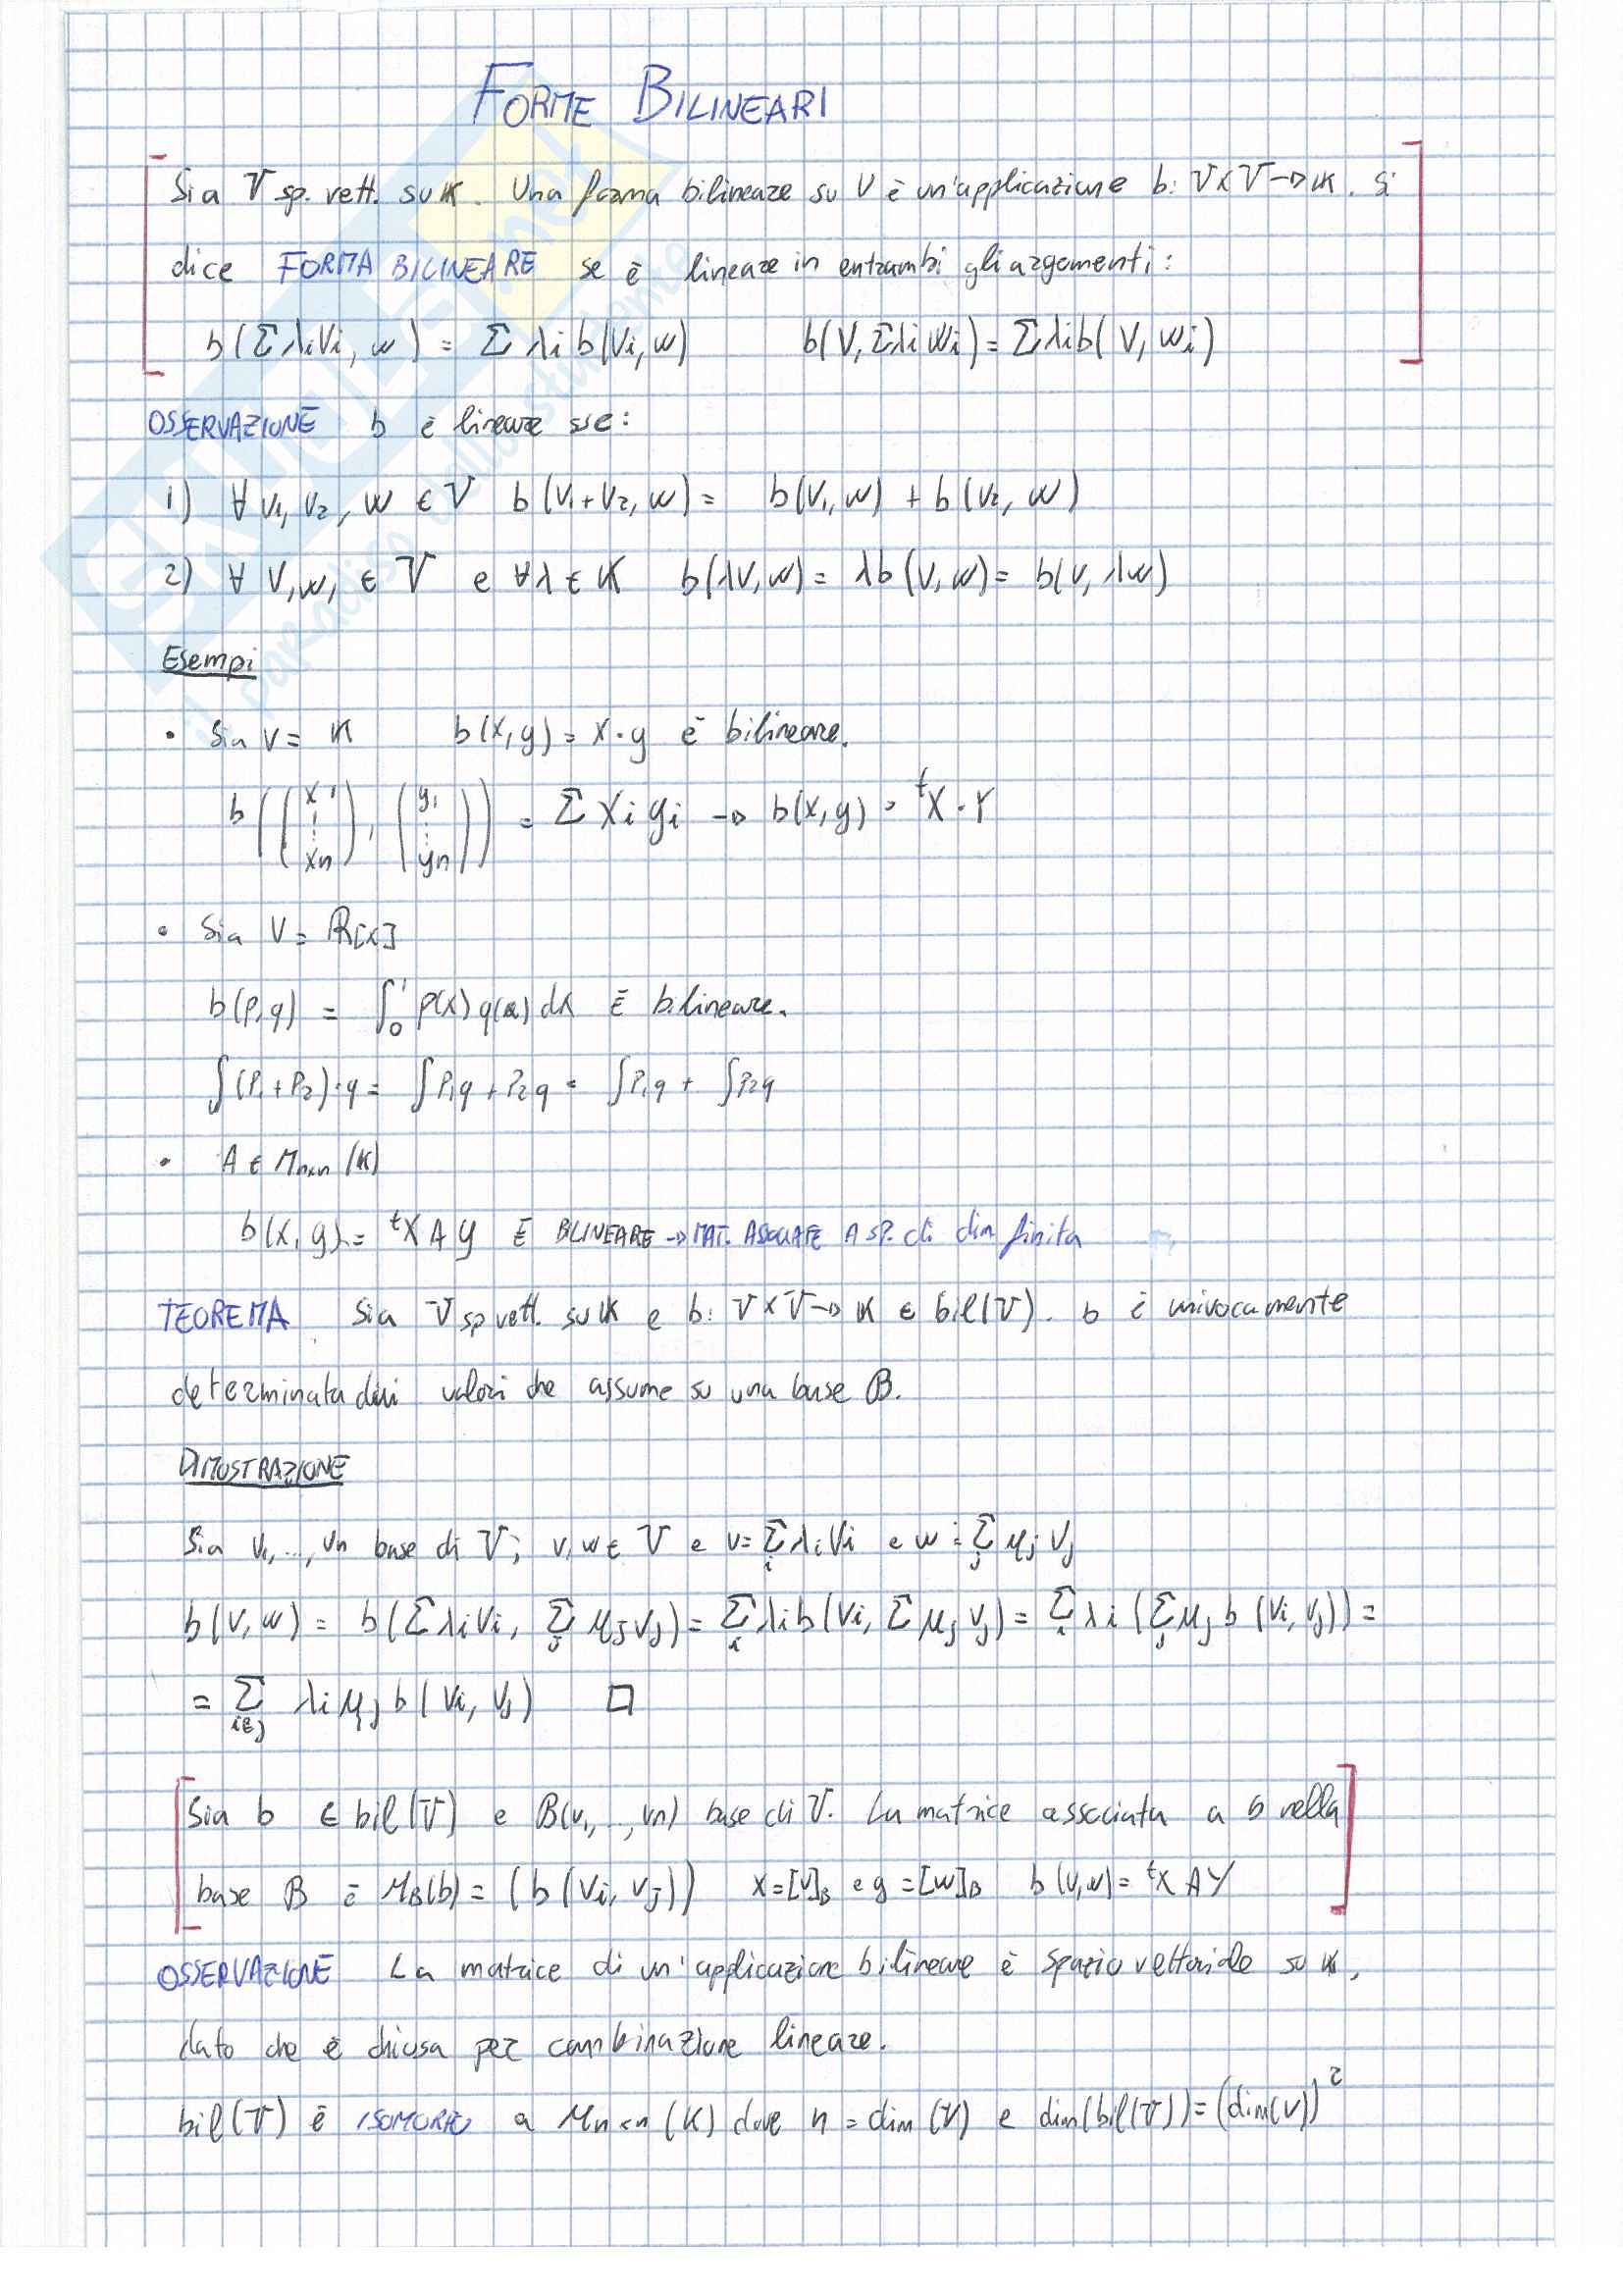 FORME BILINEARI
Sia V sp. vett. su K. Una forma bilineare su V è un'applicazione b: V×V→K. Si
dice FORMA BILINEARE se è lineare in entrambi gli argomenti:
b(Σλivi, w) = Σ λi b(vi, w) b(v, Σλiwi) = Σλib(v, wi)
OSSERVAZIONE b è lineare sse:
1) ∀ v1, v2, w ∈ V b(v1+v2, w) = b(v1, w) + b(v2, w)
2) ∀ v, w, ∈ V e ∀λ ∈ K b(λv, w) = λb(v, w) = b(v, λw)
Esempi
• Sia V = K b(x,y) = x·y è bilineare.
b((x1 ⋮ xn), (y1 ⋮ yn)) = Σ xi yi → b(x,y) = ᵗX·Y
• Sia V = R[x]
b(p,q) = ∫₀¹ p(x) q(x) dx È bilineare.
∫(P1+P2)·q = ∫P1q + P2q = ∫P1q + ∫P2q
• A ∈ Mnxn (K)
b(x,y) = ᵗX A y È BILINEARE → MAT. ASSOCIATE A SP. di dim finita
TEOREMA Sia V sp vett. su K e b: V×V→K ∈ bil(V). b è univocamente
determinata dai valori che assume su una base B.
DIMOSTRAZIONE
Sia v1, ..., vn base di V; v, w ∈ V e v = Σi λi vi e w = Σj μj vj
b(v,w) = b(Σ λi vi, Σj μj vj) = Σi λi b(vi, Σ μj vj) = Σi λi (Σj μj b (vi, vj)) =
= Σ λi μj b(vi, vj) □
Sia b ∈ bil(V) e B(v1, ..., vn) base di V. La matrice associata a b nella
base B è MB(b) = (b(vi, vj)) x = [v]B e y = [w]B b(v,w) = ᵗX A Y
OSSERVAZIONE La matrice di un'applicazione bilineare è spazio vettoriale su K,
dato che è chiusa per combinazione lineare.
bil(V) è ISOMORFO a Mn×n (K) dove n = dim (V) e dim(bil(V)) = (dim(V))²